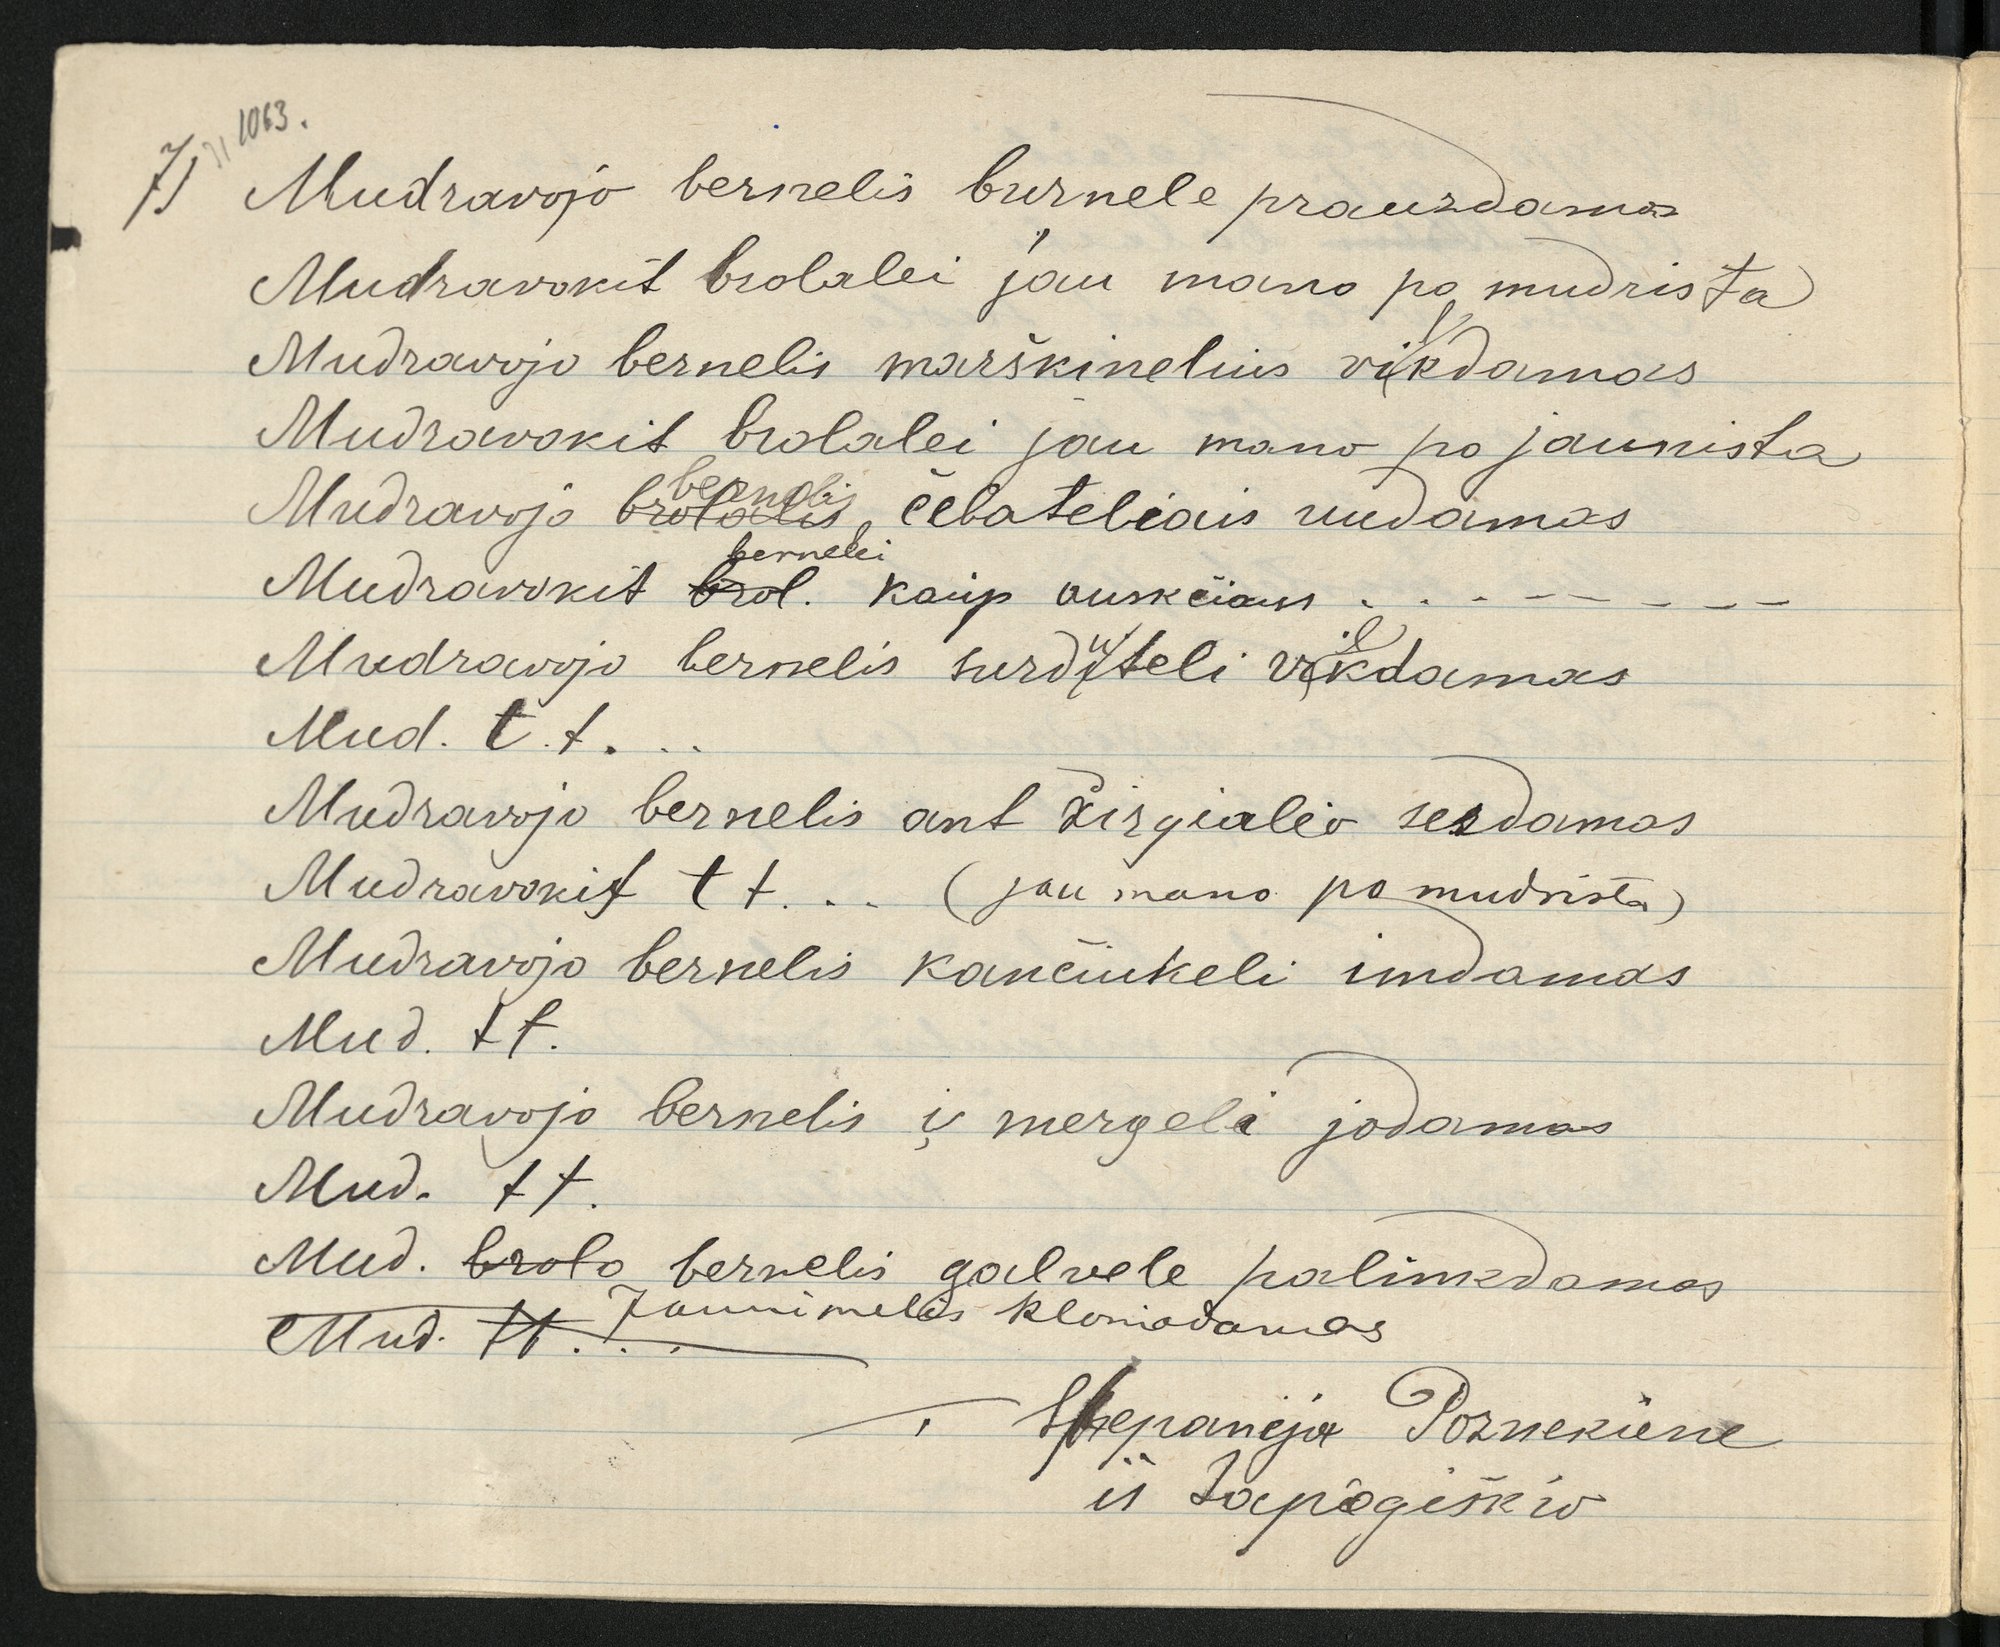 7) 1063.
Mudravojo bernelis burnele prausdamas
Mudravokit brolalei jau mano po mudrista
Mudravojo bernelis marškinelius vilkdamas
Mudravokit brolalei jau mano po jaunista
Mudravojo brolalis bernelis čebateliais audamas
Mudravokit brol. bernelei kaip aukščiaus . . - - - - - -
Mudravojo bernelis surduteli vilkdamas
Mud. t.t. ..
Mudravojo bernelis ant žirgialio sesdamas
Mudravokit t t. .. (jau mano po mudrista)
Mudravojo bernelis kančiukeli imdamas
Mud. t t.
Mudravojo bernelis į mergeli jodamas
Mud. t t.
Mud. brolo bernelis galvele palinkdamas
Jaunimelis kloniodamas
Mud. tt. . .
Stepanėja Poznekiene
iš Zapiogiškio